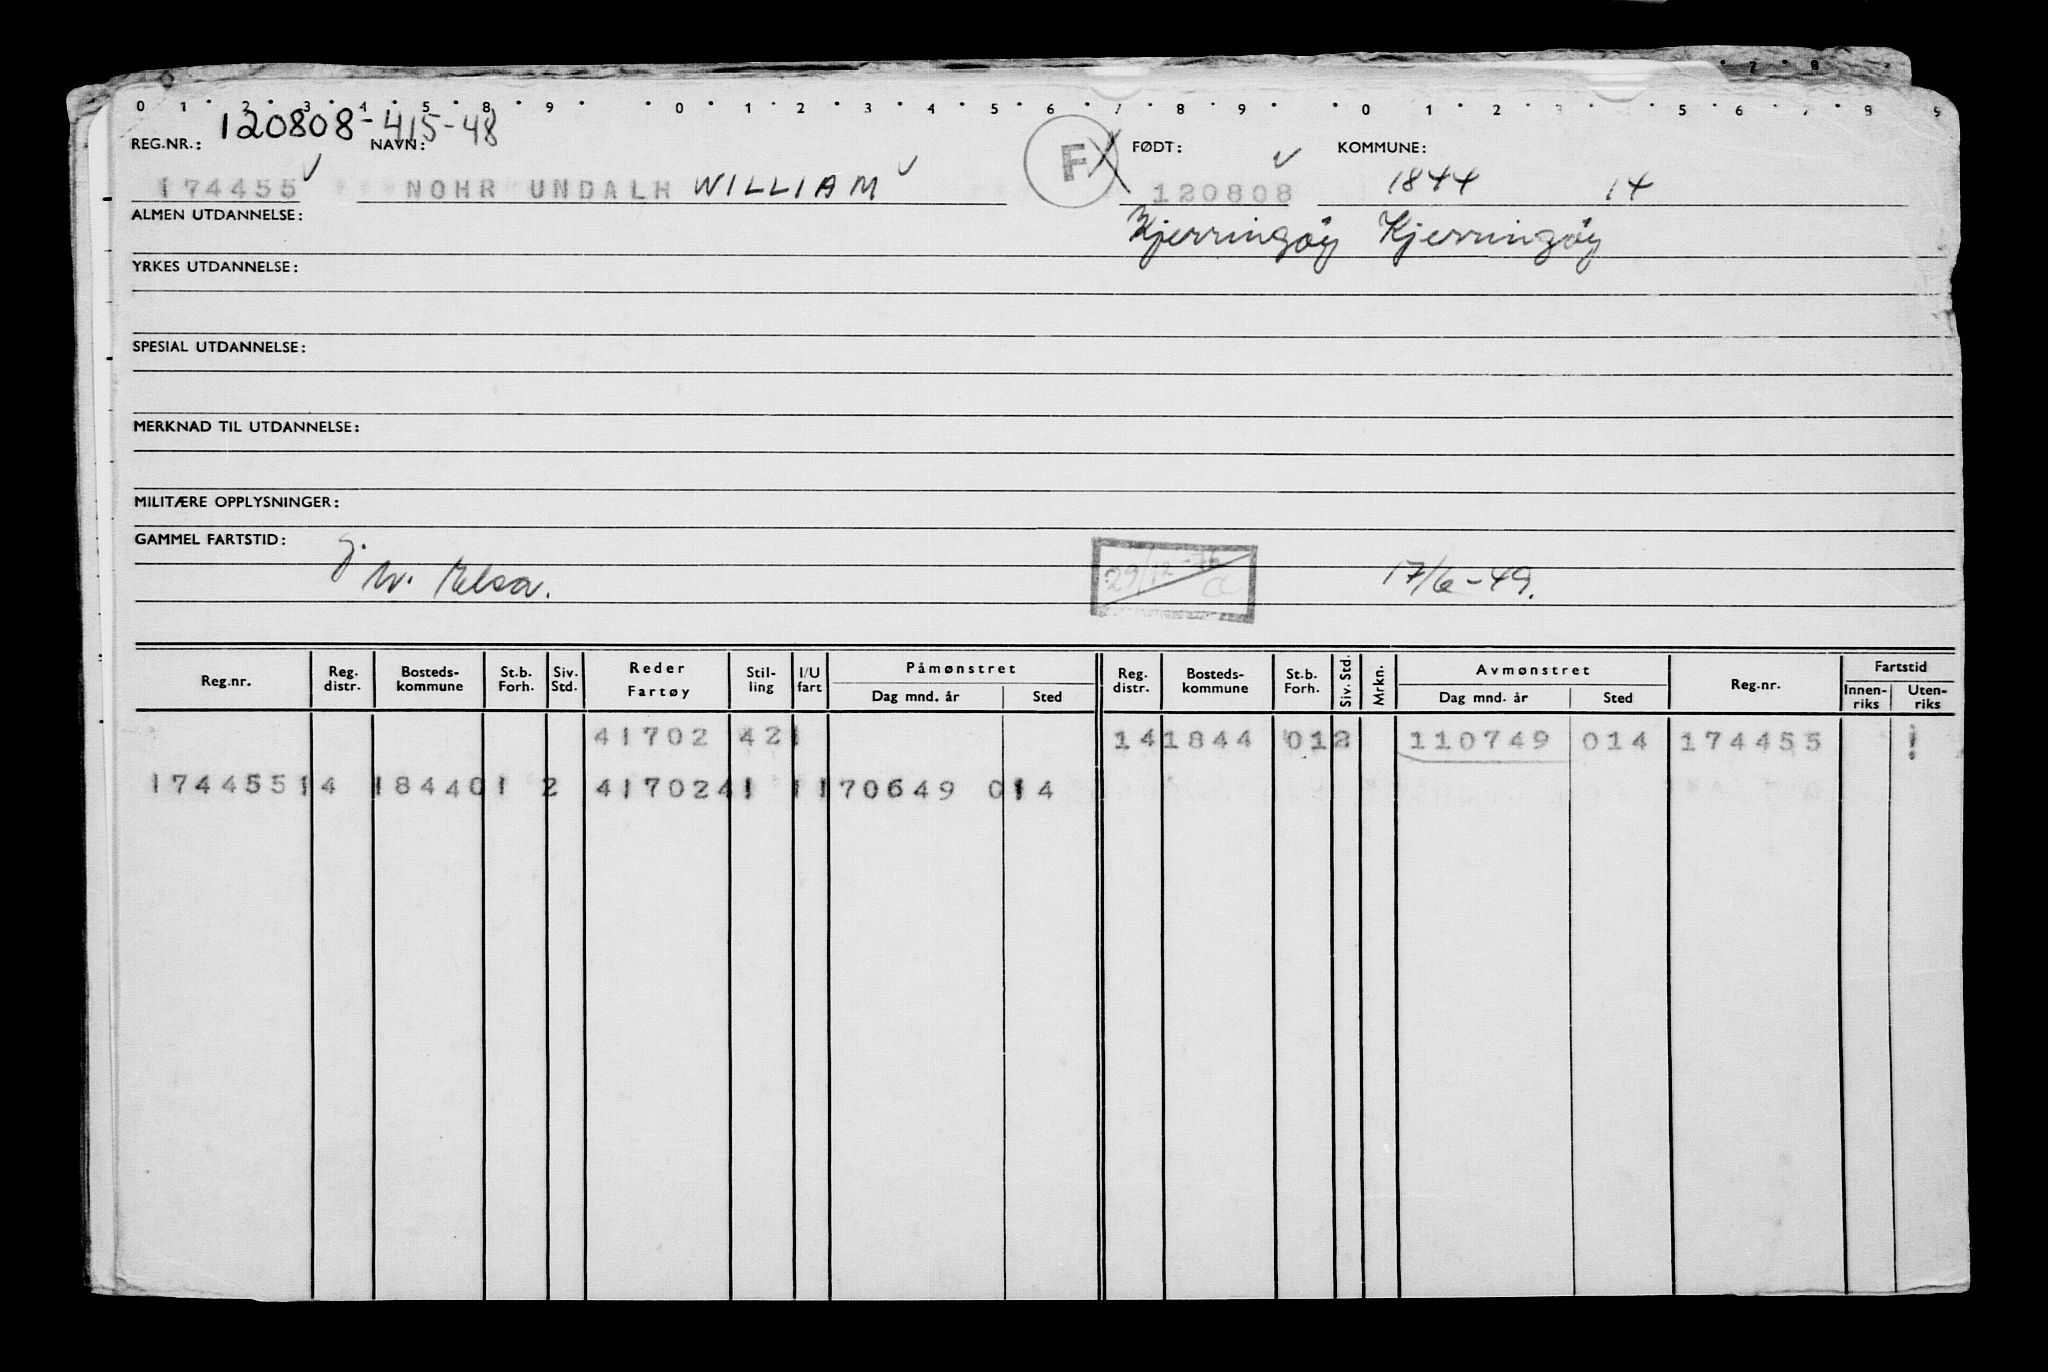 7 8
0 1 2 3 4 5 8 9 0 1 2 3 4 5 6 7 8 9 0 1 2 3 4 5 6 7 8 9
120808-415-48
REG.NR.: NAVN: FØDT: KOMMUNE:
F
174455 NOHR UNDALH WILLIAM 120808 1844 14
ALMEN UTDANNELSE: Kjerringøy Kjerringøy
YRKES UTDANNELSE:
SPESIAL UTDANNELSE:
MERKNAD TIL UTDANNELSE:
MILITÆRE OPPLYSNINGER:
GAMMEL FARTSTID:
29/12-76 17/6-49.
Elsa.
Reg.nr. Reg. distr. Bosteds-kommune St.b. Forh. Siv. Std. Reder Fartøy Stil-ling I/U fart Påmønstret Dag mnd. år Sted Reg. distr. Bosteds-kommune St.b. Forh. Siv. Std. Mrkn. Avmønstret Dag mnd. år Sted Reg.nr. Fartstid Innen-riks Uten-riks
41702 421 14 1844 012 110749 014 174455 1
174455 14 184401 2 4170241 1170649 014